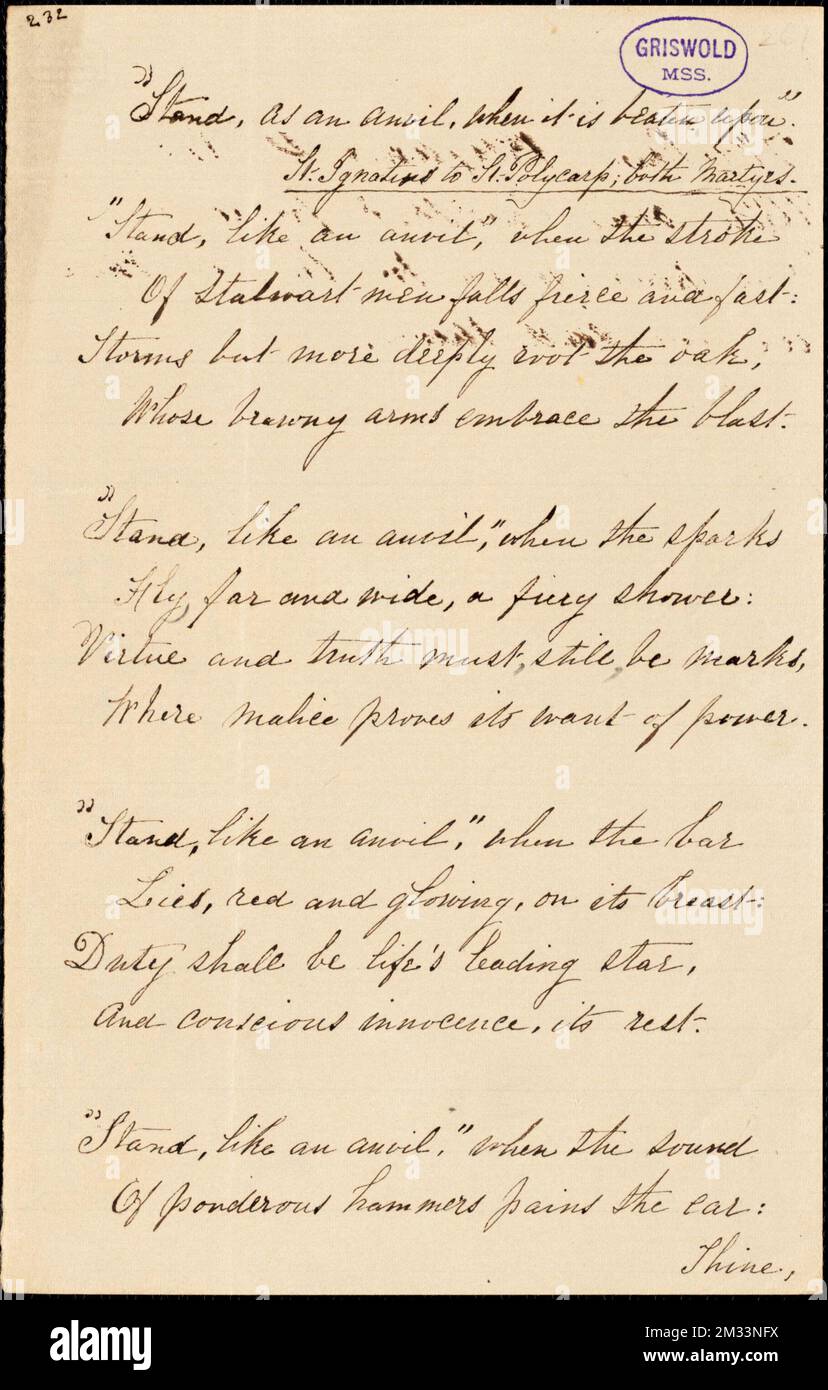 232
GRISWOLD
MSS.
"Stand, as an anvil, when it is beaten upon".
St. Ignatius to St. Polycarp; both Martyrs.
"Stand, like an anvil", when the stroke
Of stalwart men falls fierce and fast:
Storms but more deeply root the oak,
Whose brawny arms embrace the blast.
"Stand, like an anvil," when the sparks
Fly, far and wide, a fiery shower:
Virtue and truth must, still, be marks,
Where malice proves its want of power.
"Stand, like an anvil," when the bar
Lies, red and glowing, on its breast:
Duty shall be life's leading star,
And conscious innocence, its rest.
"Stand, like an anvil," when the sound
Of ponderous hammers pains the ear:
Thine,
alamy
Image ID: 2M33NFX
www.alamy.com